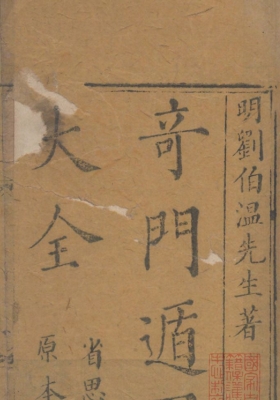 明劉伯温先生著
奇門遁
大全
省思
原本